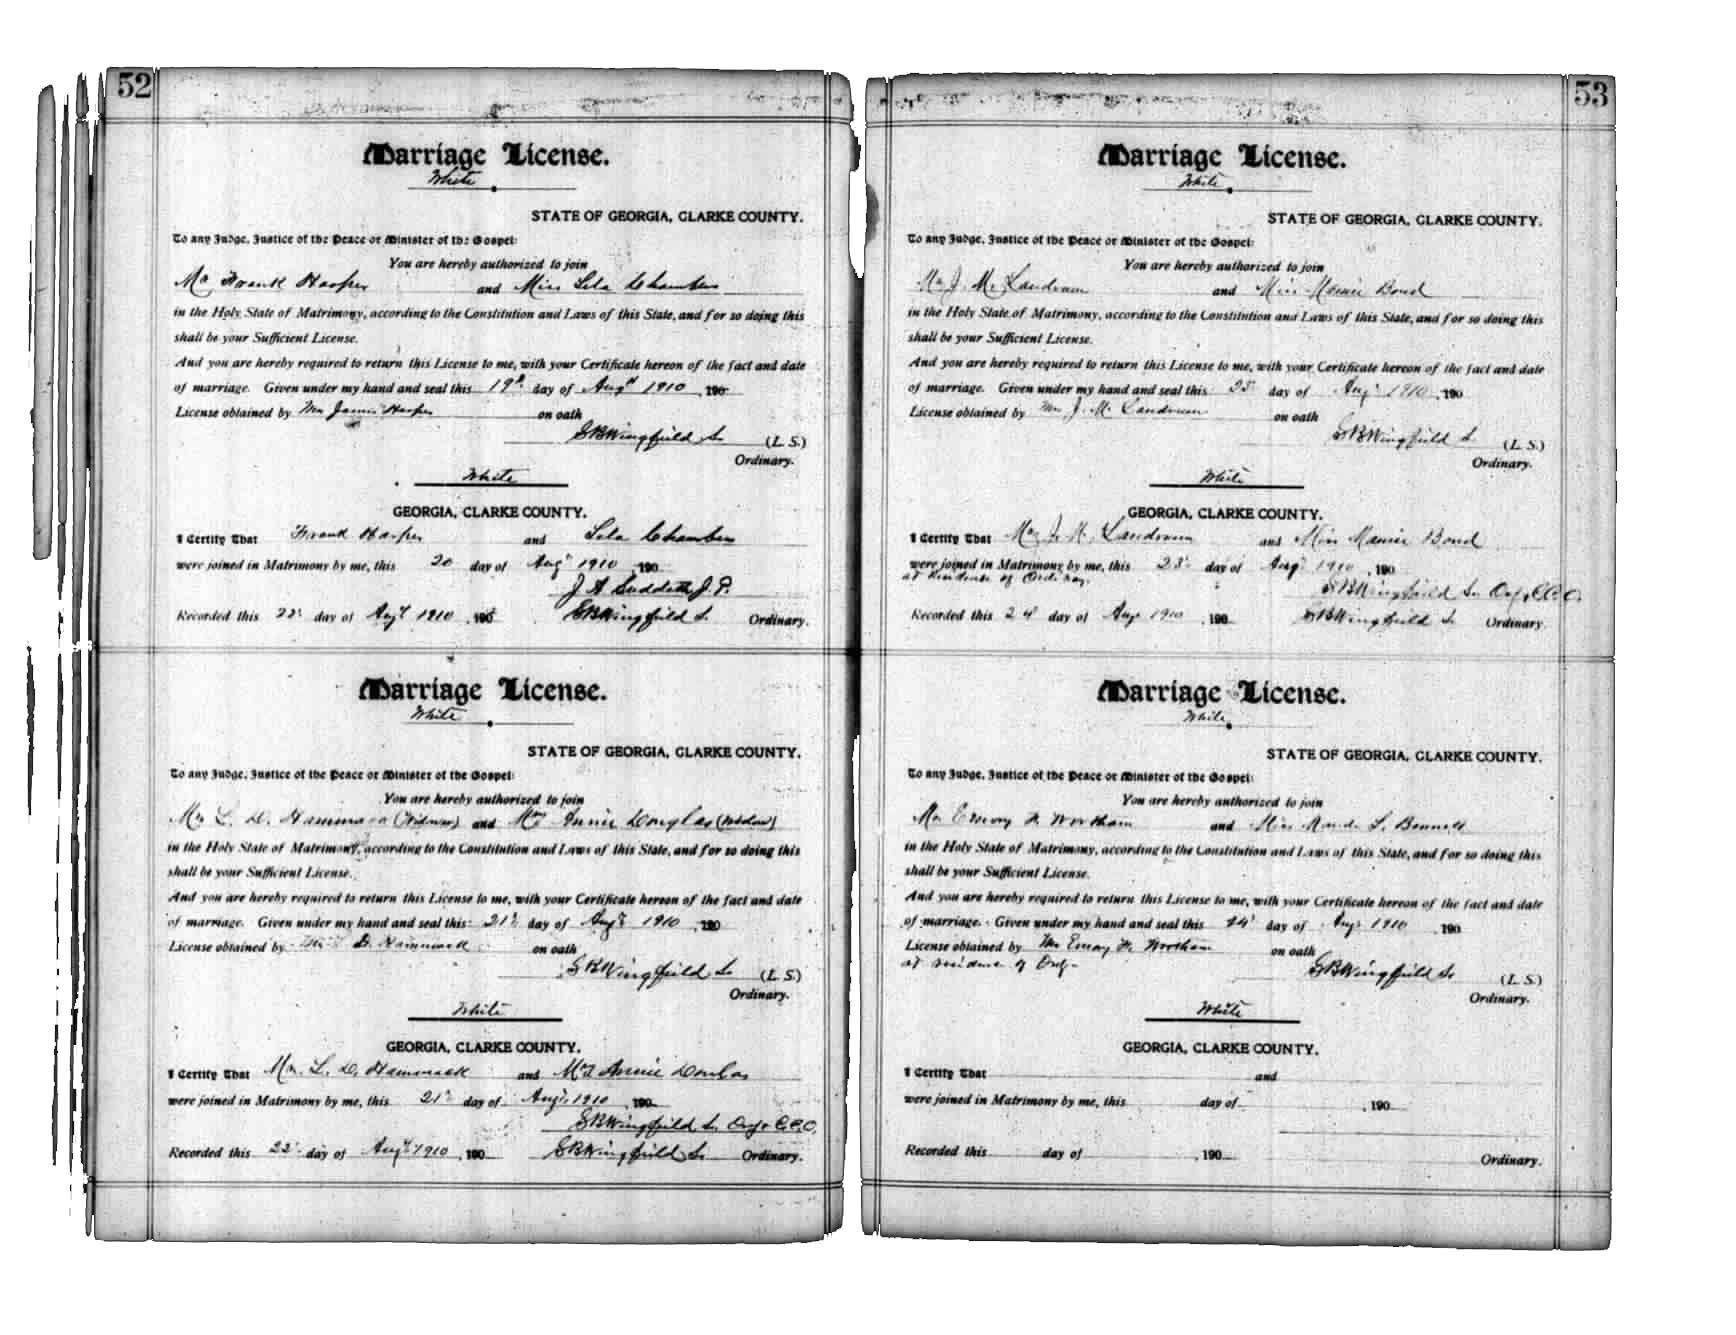 52
Marriage License.
White
STATE OF GEORGIA, CLARKE COUNTY.
To any Judge, Justice of the Peace or Minister of the Gospel:
You are hereby authorized to join
Mr Frank Harper and Miss Lela Chambers
in the Holy State of Matrimony, according to the Constitution and Laws of this State, and for so doing this
shall be your Sufficient License.
And you are hereby required to return this License to me, with your Certificate hereon of the fact and date
of marriage. Given under my hand and seal this 19th day of Augt 1910, 190
License obtained by Mr Jamie Harper on oath
S B Wingfield Sr (L. S.)
Ordinary.
White
GEORGIA, CLARKE COUNTY.
I Certify That Frank Harper and Lela Chambers
were joined in Matrimony by me, this 20 day of Augt 1910, 190
J A Suddeth J. P.
Recorded this 22 day of Augt 1910, 190 S B Wingfield Sr Ordinary.
Marriage License.
White
STATE OF GEORGIA, CLARKE COUNTY.
To any Judge, Justice of the Peace or Minister of the Gospel:
You are hereby authorized to join
Mr L. D. Hammack (Widower) and Mrs Annie Douglas (Widow)
in the Holy State of Matrimony, according to the Constitution and Laws of this State, and for so doing this
shall be your Sufficient License.
And you are hereby required to return this License to me, with your Certificate hereon of the fact and date
of marriage. Given under my hand and seal this 21 day of Augt 1910, 190
License obtained by D. Hammack on oath
S B Wingfield Sr (L. S.)
Ordinary.
White
GEORGIA, CLARKE COUNTY.
I Certify That Mr. L. D. Hammack and Mrs Annie Douglas
were joined in Matrimony by me, this 21 day of Augt 1910, 190
S B Wingfield Sr Ordy C.C.O.
Recorded this 22 day of Augt 1910, 190 S B Wingfield Sr Ordinary.
53
Marriage License.
White
STATE OF GEORGIA, CLARKE COUNTY.
To any Judge, Justice of the Peace or Minister of the Gospel:
You are hereby authorized to join
Mr J. M. Landrum and Miss Mamie Bond
in the Holy State of Matrimony, according to the Constitution and Laws of this State, and for so doing this
shall be your Sufficient License.
And you are hereby required to return this License to me, with your Certificate hereon of the fact and date
of marriage. Given under my hand and seal this 23 day of Aug 1910, 190
License obtained by Mr J. M. Landrum on oath
S B Wingfield Sr (L. S.)
Ordinary.
White
GEORGIA, CLARKE COUNTY.
I Certify That Mr J. M. Landrum and Miss Mamie Bond
were joined in Matrimony by me, this 23 day of Aug 1910, 190
at Residence of Ordinary.
S B Wingfield Sr Ordy C.C.O.
Recorded this 24 day of Aug 1910, 190 S B Wingfield Sr Ordinary.
Marriage License.
White
STATE OF GEORGIA, CLARKE COUNTY.
To any Judge, Justice of the Peace or Minister of the Gospel:
You are hereby authorized to join
Mr Emory H. Wortham and Miss Maude L. Bennett
in the Holy State of Matrimony, according to the Constitution and Laws of this State, and for so doing this
shall be your Sufficient License.
And you are hereby required to return this License to me, with your Certificate hereon of the fact and date
of marriage. Given under my hand and seal this 24 day of Aug 1910, 190
License obtained by Mr Emory H. Wortham on oath
at residence of Ordy.
S B Wingfield Sr (L. S.)
Ordinary.
White
GEORGIA, CLARKE COUNTY.
I Certify That and
were joined in Matrimony by me, this day of , 190
Recorded this day of , 190 Ordinary.